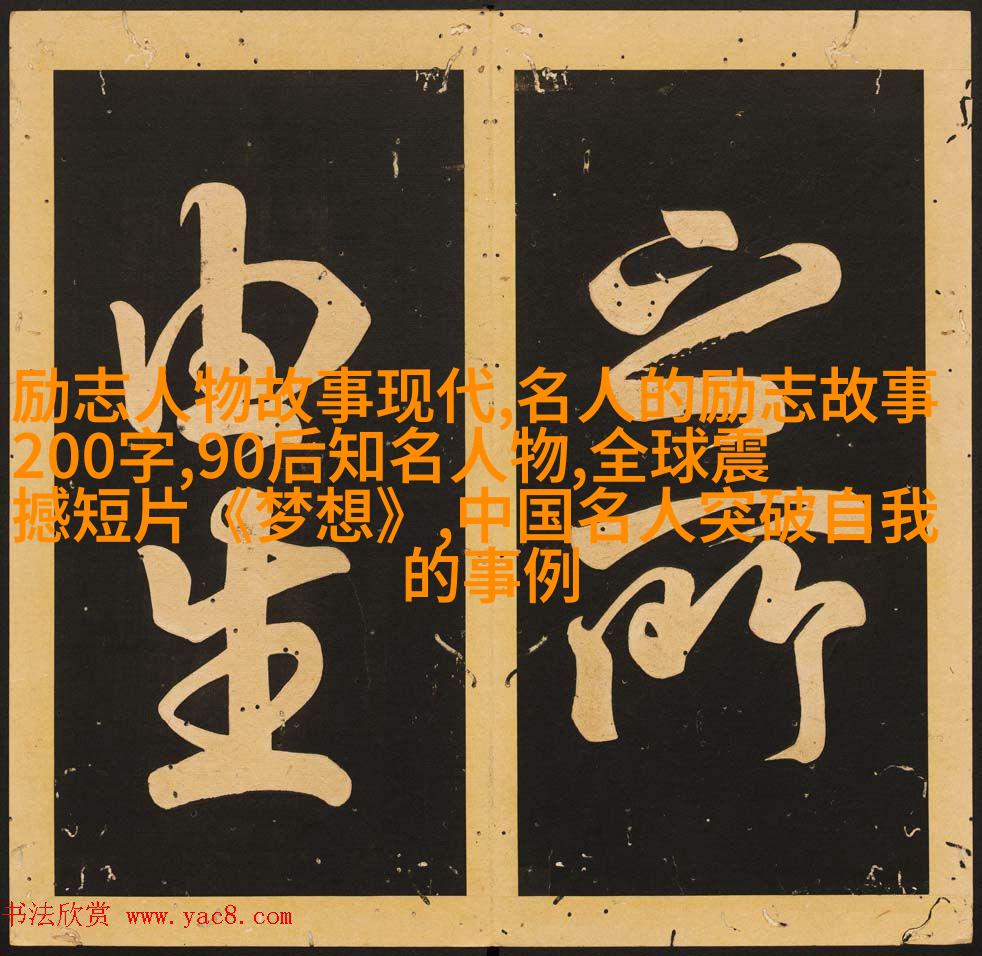 之所
由生
励志人物故事现代,名人的励志故事
200字,90后知名人物,全球震
撼短片《梦想》,中国名人突破自我
的事例
书法欣赏 www.yac8.com